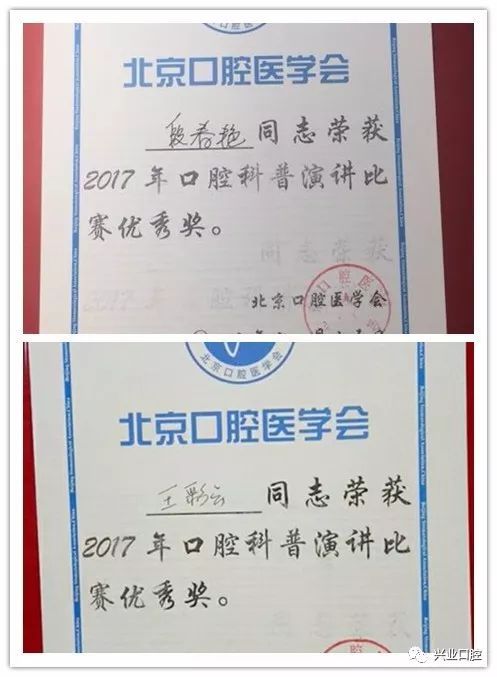 北京口腔医学会
段春艳 同志荣获
2017年口腔科普演讲比
赛优秀奖。
北京口腔医学会
北京口腔医学会
北京口腔医学会
王彩云 同志荣获
2017年口腔科普演讲比
赛优秀奖。
兴业口腔